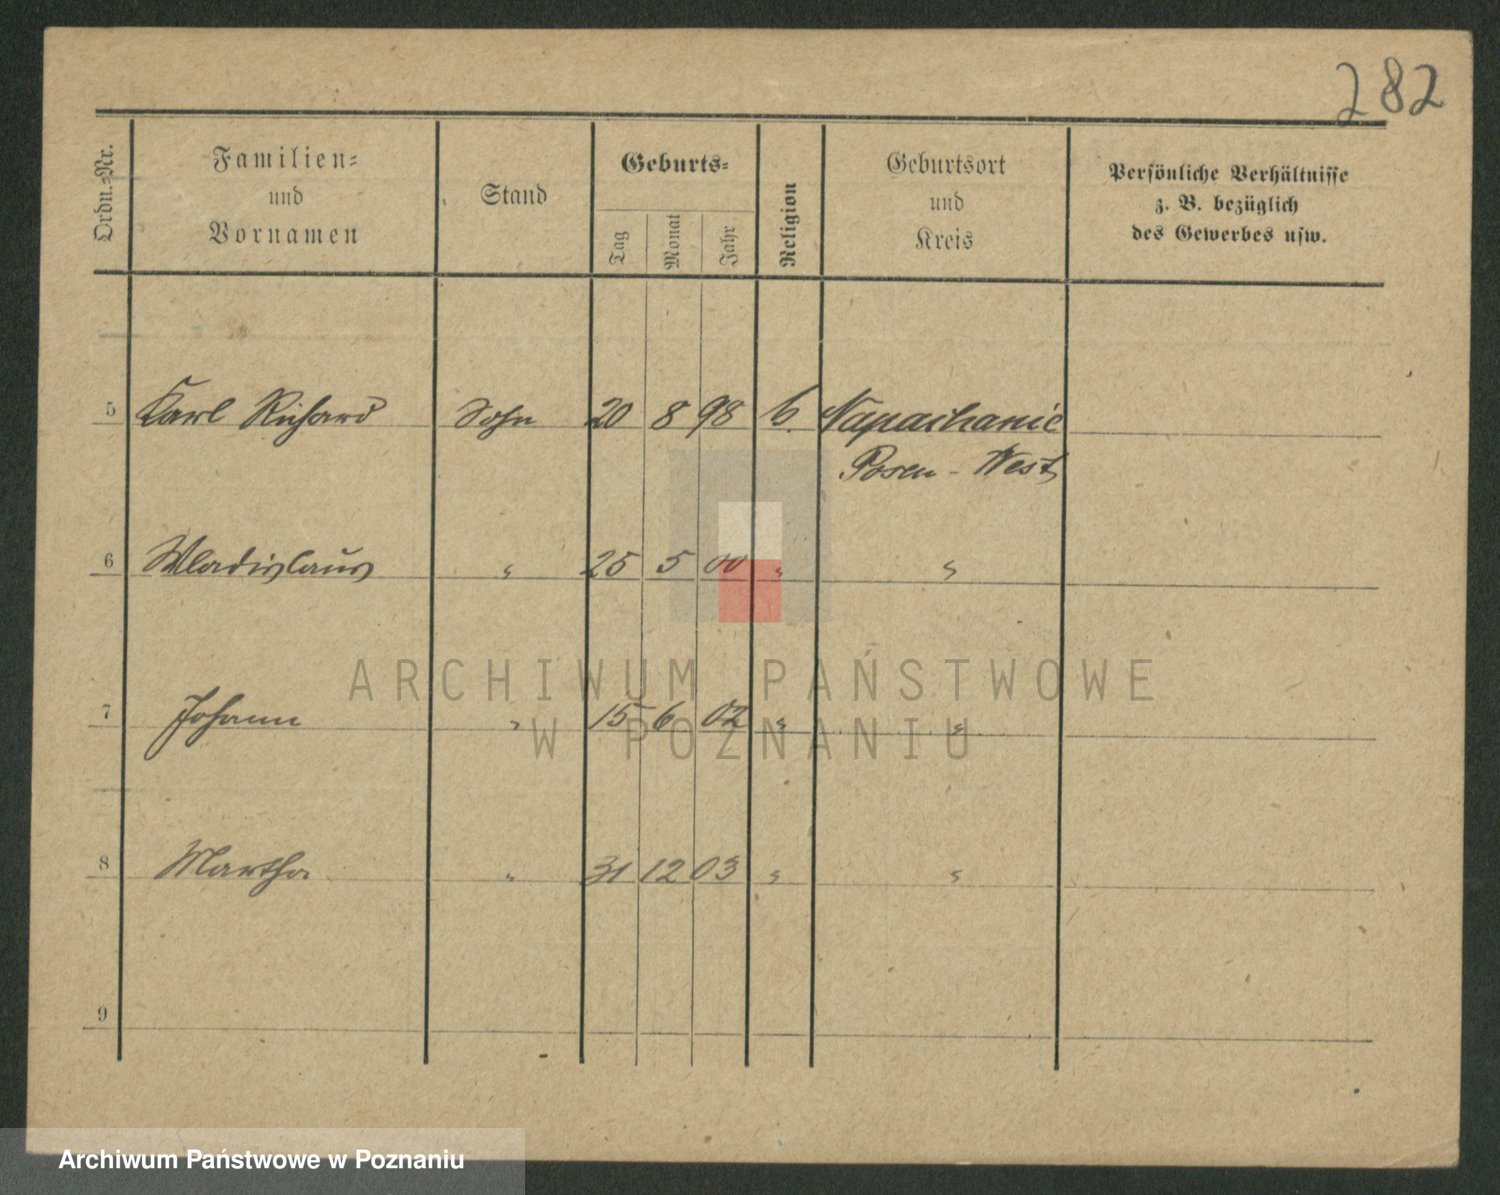 282
Ordn.-Nr.
Familien-
und
Vornamen
Stand
Geburts-
Tag
Monat
Jahr
Religion
Geburtsort
und
Kreis
Persönliche Verhältnisse
z. B. bezüglich
des Gewerbes usw.
5 Karl Richard Sohn 20 8 98 Napachanie
Posen - West
6 Wladislaus " 25 5 00 " "
ARCHIWUM PAŃSTWOWE
7 Johann " 15 6 02 " "
W POZNANIU
8 Martha " 31 12 03 " "
9
Archiwum Państwowe w Poznaniu